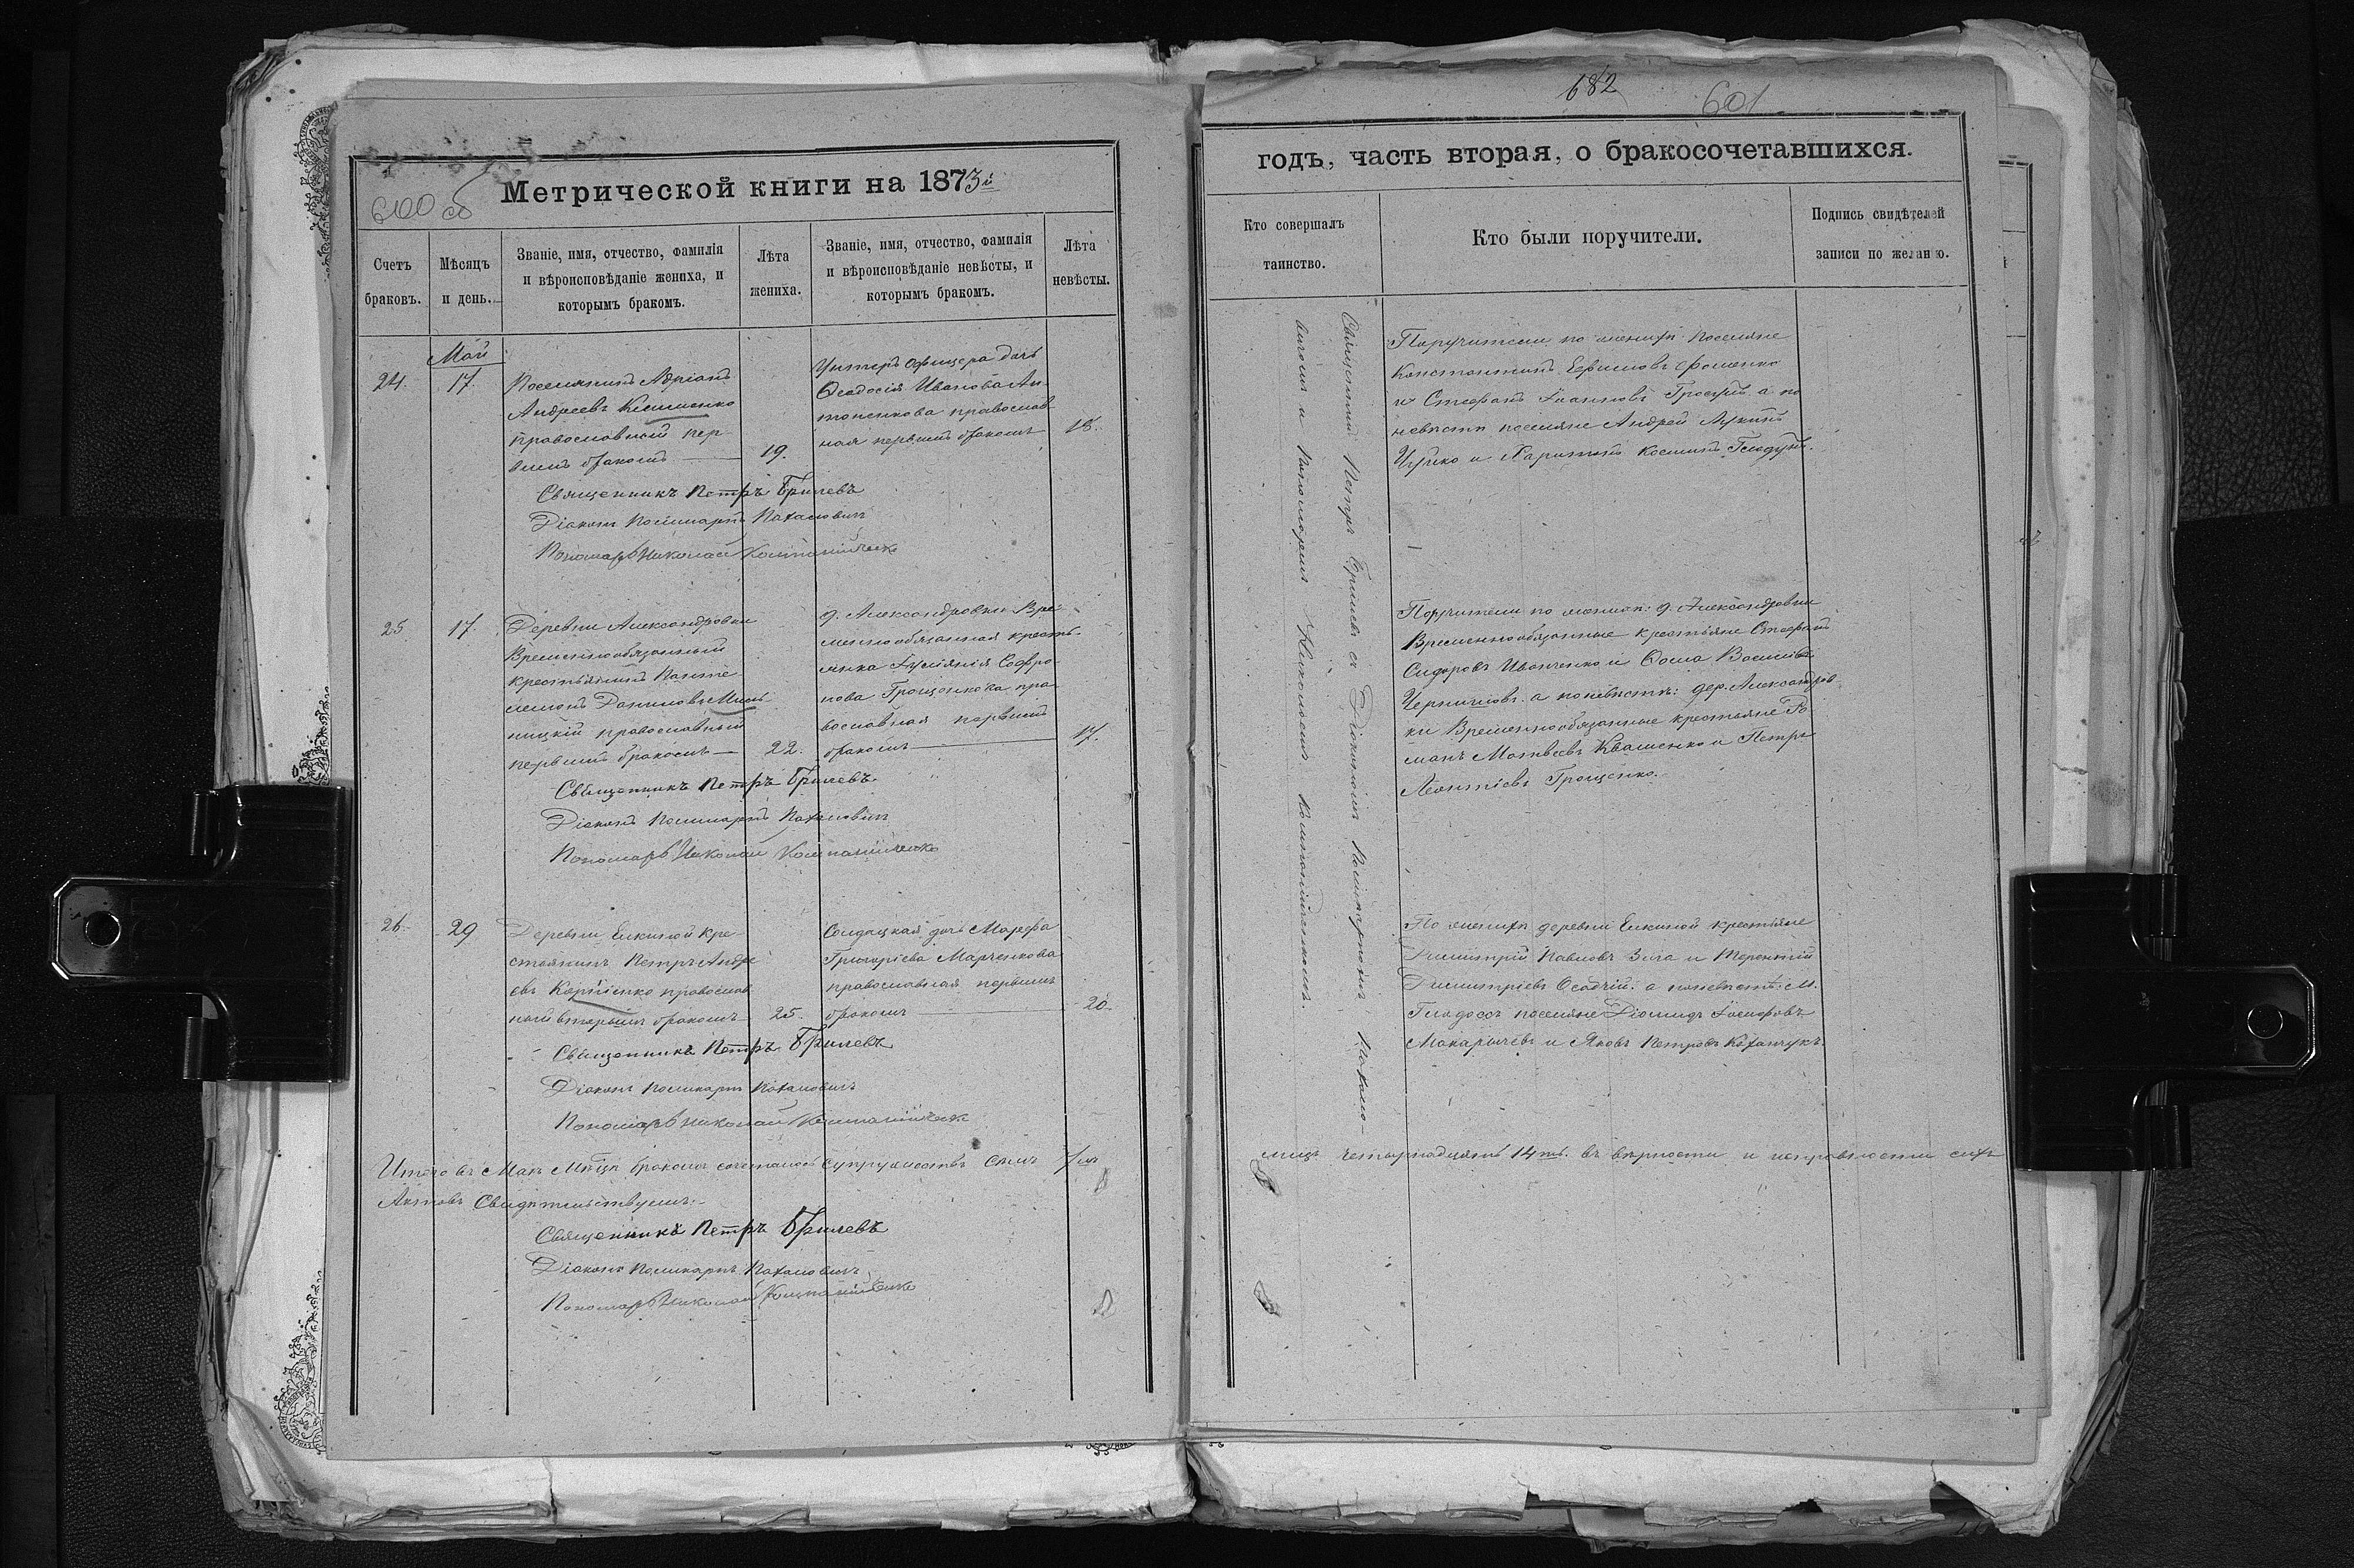 600 об
Метрической книги на 1873й
Счетъ
браковъ.
Мѣсяцъ
и день.
Званіе, имя, отчество, фамилія
и вѣроисповѣданіе жениха, и
которымъ бракомъ.
Лѣта
жениха.
Званіе, имя, отчество, фамилія
и вѣроисповѣданіе невѣсты, и
которымъ бракомъ.
Лѣта
невѣсты.
Май
24. 17.
Поселянинъ Адріанъ
Андреевъ Клименко
православный пер-
вымъ бракомъ
19.
Унтеръ офицера дочь
Ѳеодосія Иванова Ан-
тоненкова православ
ная первымъ бракомъ
18.
Священникъ Петръ Брилевъ
Діаконъ Поликарпъ
Пономарь Николай Компанійченко
25 17.
Деревни Александровки
Временнообязанный
крестьянинъ Панте-
леимонъ Даниловъ
православный
первымъ бракомъ
22.
д. Александровки Вре-
меннообязанная кресть-
янка Іуліянія Софро-
нова Грощенкова пра-
вославная первымъ
бракомъ
17.
Священникъ Петръ Брилевъ.
Діаконъ Поликарпъ
Пономарь Николай Компанійченко
26. 29
Деревни Елкиной Кре-
стянинъ Петръ Андре
евъ Корніенко православ
ный вторымъ бракомъ
25.
Солдацкая дочь Марфа
Григоріева Марченкова
православная первымъ
бракомъ
20.
Священникъ Петръ Брилевъ
Діаконъ Поликарпъ
Пономарь Николай Компанійченко
Итого въ Маѣ Мѣсяцѣ бракомъ сочеталось супружествъ семь 7мъ
Актовъ Свидѣтельствуемъ:
Священникъ Петръ Брилевъ
Діаконъ Поликарпъ
Пономарь Николай Компанійченко
682
601
годъ, часть вторая, о бракосочетавшихся.
Кто совершалъ
таинство.
Кто были поручители.
Подпись свидѣтелей
записи по желанію.
Священникъ Петръ Брилевъ съ Діакономъ Поликарпомъ
и Пономаремъ Николаемъ Компанійченкомъ.
Поручители по женихѣ поселяне
Константинъ Ефимовъ Фоменко
и Стефанъ Іоанновъ а по
невѣстѣ поселяне Андрей Лукинъ
и Харитонъ Косминъ Гладунъ.
Поручители по женихѣ: д. Александровки
Временнообязанные крестьяне Стефанъ
Сидоровъ Иванченко и Ѳома Васильевъ
а по невѣстѣ: дер. Александров
ки Временнообязанные крестьяне Ро
манъ Матвѣевъ Квашенко и Петръ
Леонтіевъ Грощенко.
По женихѣ деревни Елкиной крестьяне
Димитрій Павловъ и Терентій
Димитріевъ Осадчій: а по невѣстѣ: М.
Гладоссъ поселяне Діомидъ
Макарычевъ и Яковъ Петровъ
лицъ четырнадцять 14ть. въ вѣрности и исправности сихъ